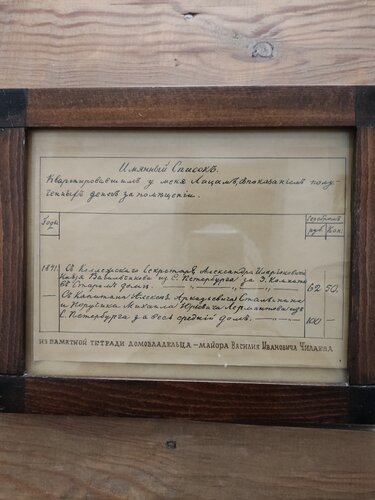 Имянный Списокъ
Квартировавшимъ у меня Лицамъ, съ показаніемъ полу-
ченныхъ денегъ за помѣщеніи.
Годы
Серебромъ
руб. Коп.
1841 Съ Коллежскаго Секретаря Александра Иларіоновича
Князя Васильчикова из С. Петербурга за 3. комнаты
въ Старомъ домѣ. 62 50.
— Съ Капитана Алексѣя Аркадьевича Столыпина
и Поручика Михаила Юрьевича Лермантова изъ
С. Петербурга за весь средній домъ. 100 —
ИЗ ПАМЯТНОЙ ТЕТРАДИ ДОМОВЛАДЕЛЬЦА — МАЙОРА ВАСИЛИЯ ИВАНОВИЧА ЧИЛАЕВА